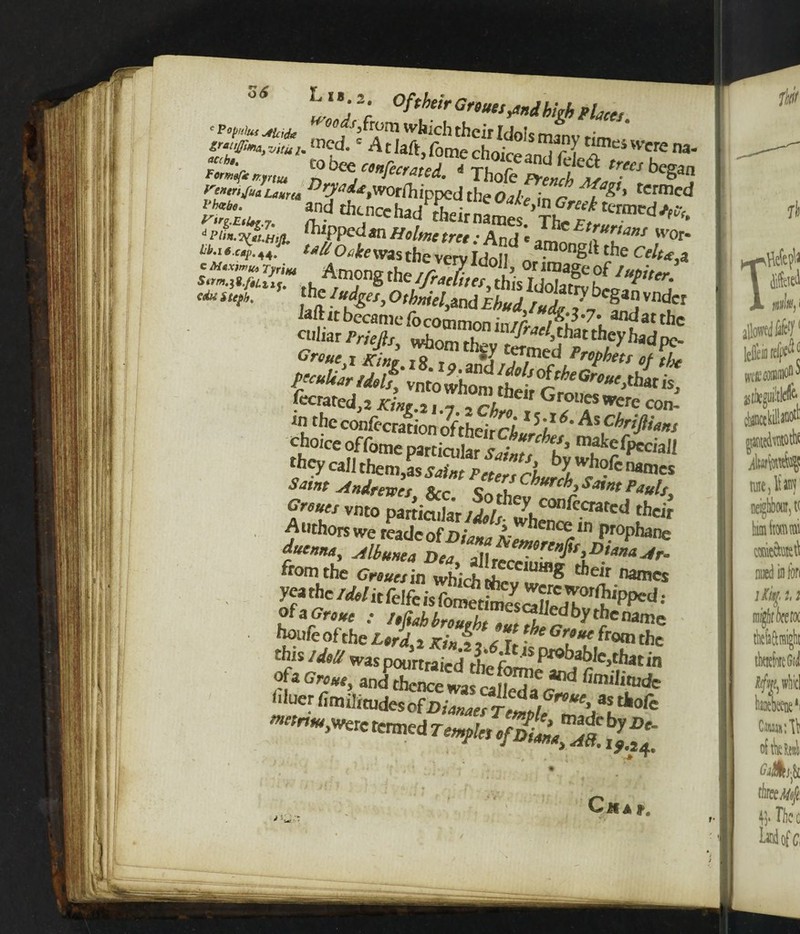 86 LIB. 2. Of their Groues, and high Places.
woods, from which their Idols many times were na-
med. c At last, some choice and select trees began
to bee consecrated. d Those French Magi, termed
Dryadæ, worshipped the Oake, in Greek termed δρῦς,
and thence had their names. The Etrurians wor-
shipped an Holme tree: And e amongst the Celtæ, a
tall Oake was the very Idoll, or image of Iupiter.
Among the Israelites, this Idolatry began vnder
the Iudges, Othniel, and Ehud, Iudg. 3.7. and at the
last it became so common in Israel, that they had pe-
culiar Priests, whom they termed Prophets of the
Groue, 1 King. 18. 19. and Idols of the Groue, that is,
peculiar Idols, vnto whom their Groues were con-
secrated, 2 King. 21.7. 2 Chro. 15.16. As Christians
in the consecration of their Churches, make speciall
choice of some particular Saints, by whose names
they call them, as Saint Peters Church, Saint Pauls,
Saint Andrewes, &c. So they consecrated their
Groues vnto particular Idols; whence in prophane
Authors we reade of Diana Nemorensis, Diana Ar-
duenna, Albunea Dea, all receiuing their names
from the Groues in which they were worshipped:
yea the Idol it selfe is sometimes called by the name
of a Groue: Iosiah brought out the Groue from the
house of the Lord, 2 Kin. 23.6. It is probable, that in
this Idoll was pourtraied the forme and similitude
of a Groue, and thence was called a Groue, as those
siluer similitudes of Dianaes Temple, made by De-
metrius, were termed Temples of Diana, Act. 19.24.
CHAP.
c Populus Alcidæ
gratissima, vitis I-
accho.
Formosæ myrtus
Veneri, sua Laurea
Phœbo.
Virg. Eclog. 7.
d Plin. Nat. Hist.
lib. 16. cap. 44.
e Maximus Tyrius
Serm. 38. fol. 225.
edit Steph.
These pla
differed
allowed safely
lesse in respect
were common
as the guiltlesse,
chance kill anoth
granted vnto the
ture, If any
neighbour, t
him from
nued in
1 King. 2. 2
might bee
the fact might
therefore
Refuge, which
haue beene
Canaan: Th
of the
three
43. The
Land of